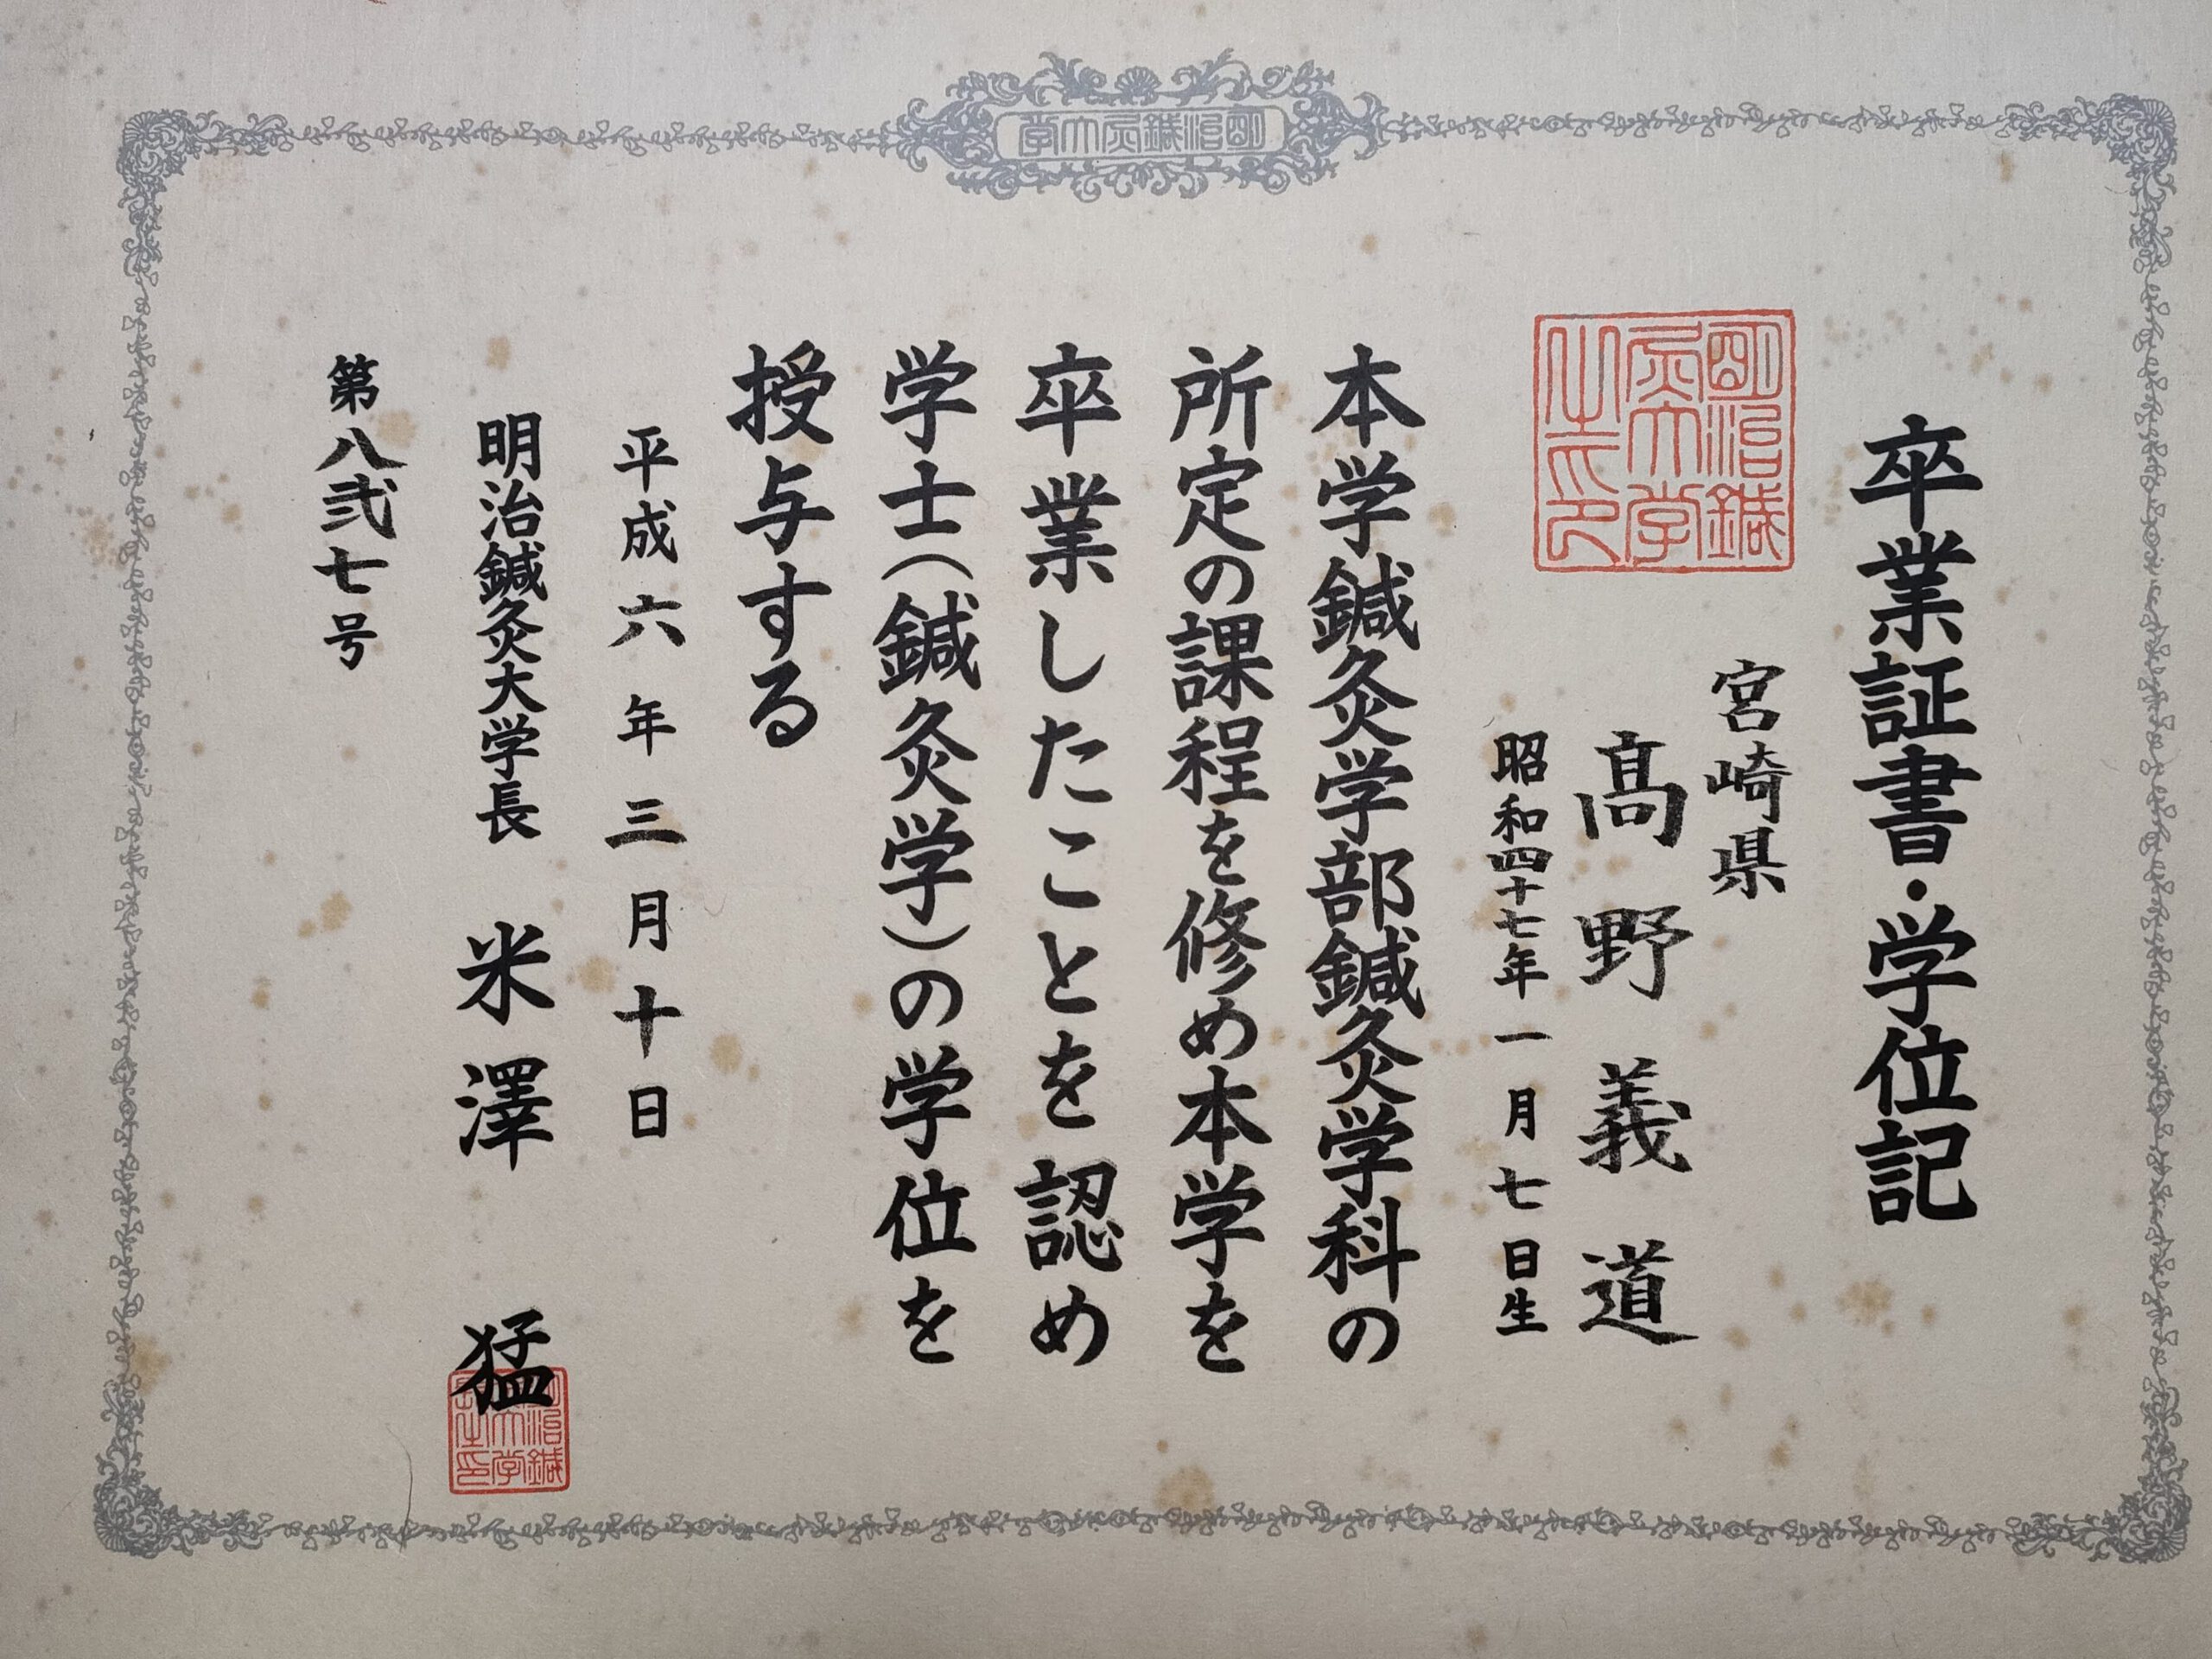 明治鍼灸大学
卒業証書・学位記
明治鍼
灸大学
之印
宮崎県
髙野義道
昭和四十七年一月七日生
本学鍼灸学部鍼灸学科の
所定の課程を修め本学を
卒業したことを認め
学士(鍼灸学)の学位を
授与する
平成六年三月十日
明治鍼灸大学長 米澤 猛
明治鍼
灸大学
長之印
第八弐七号